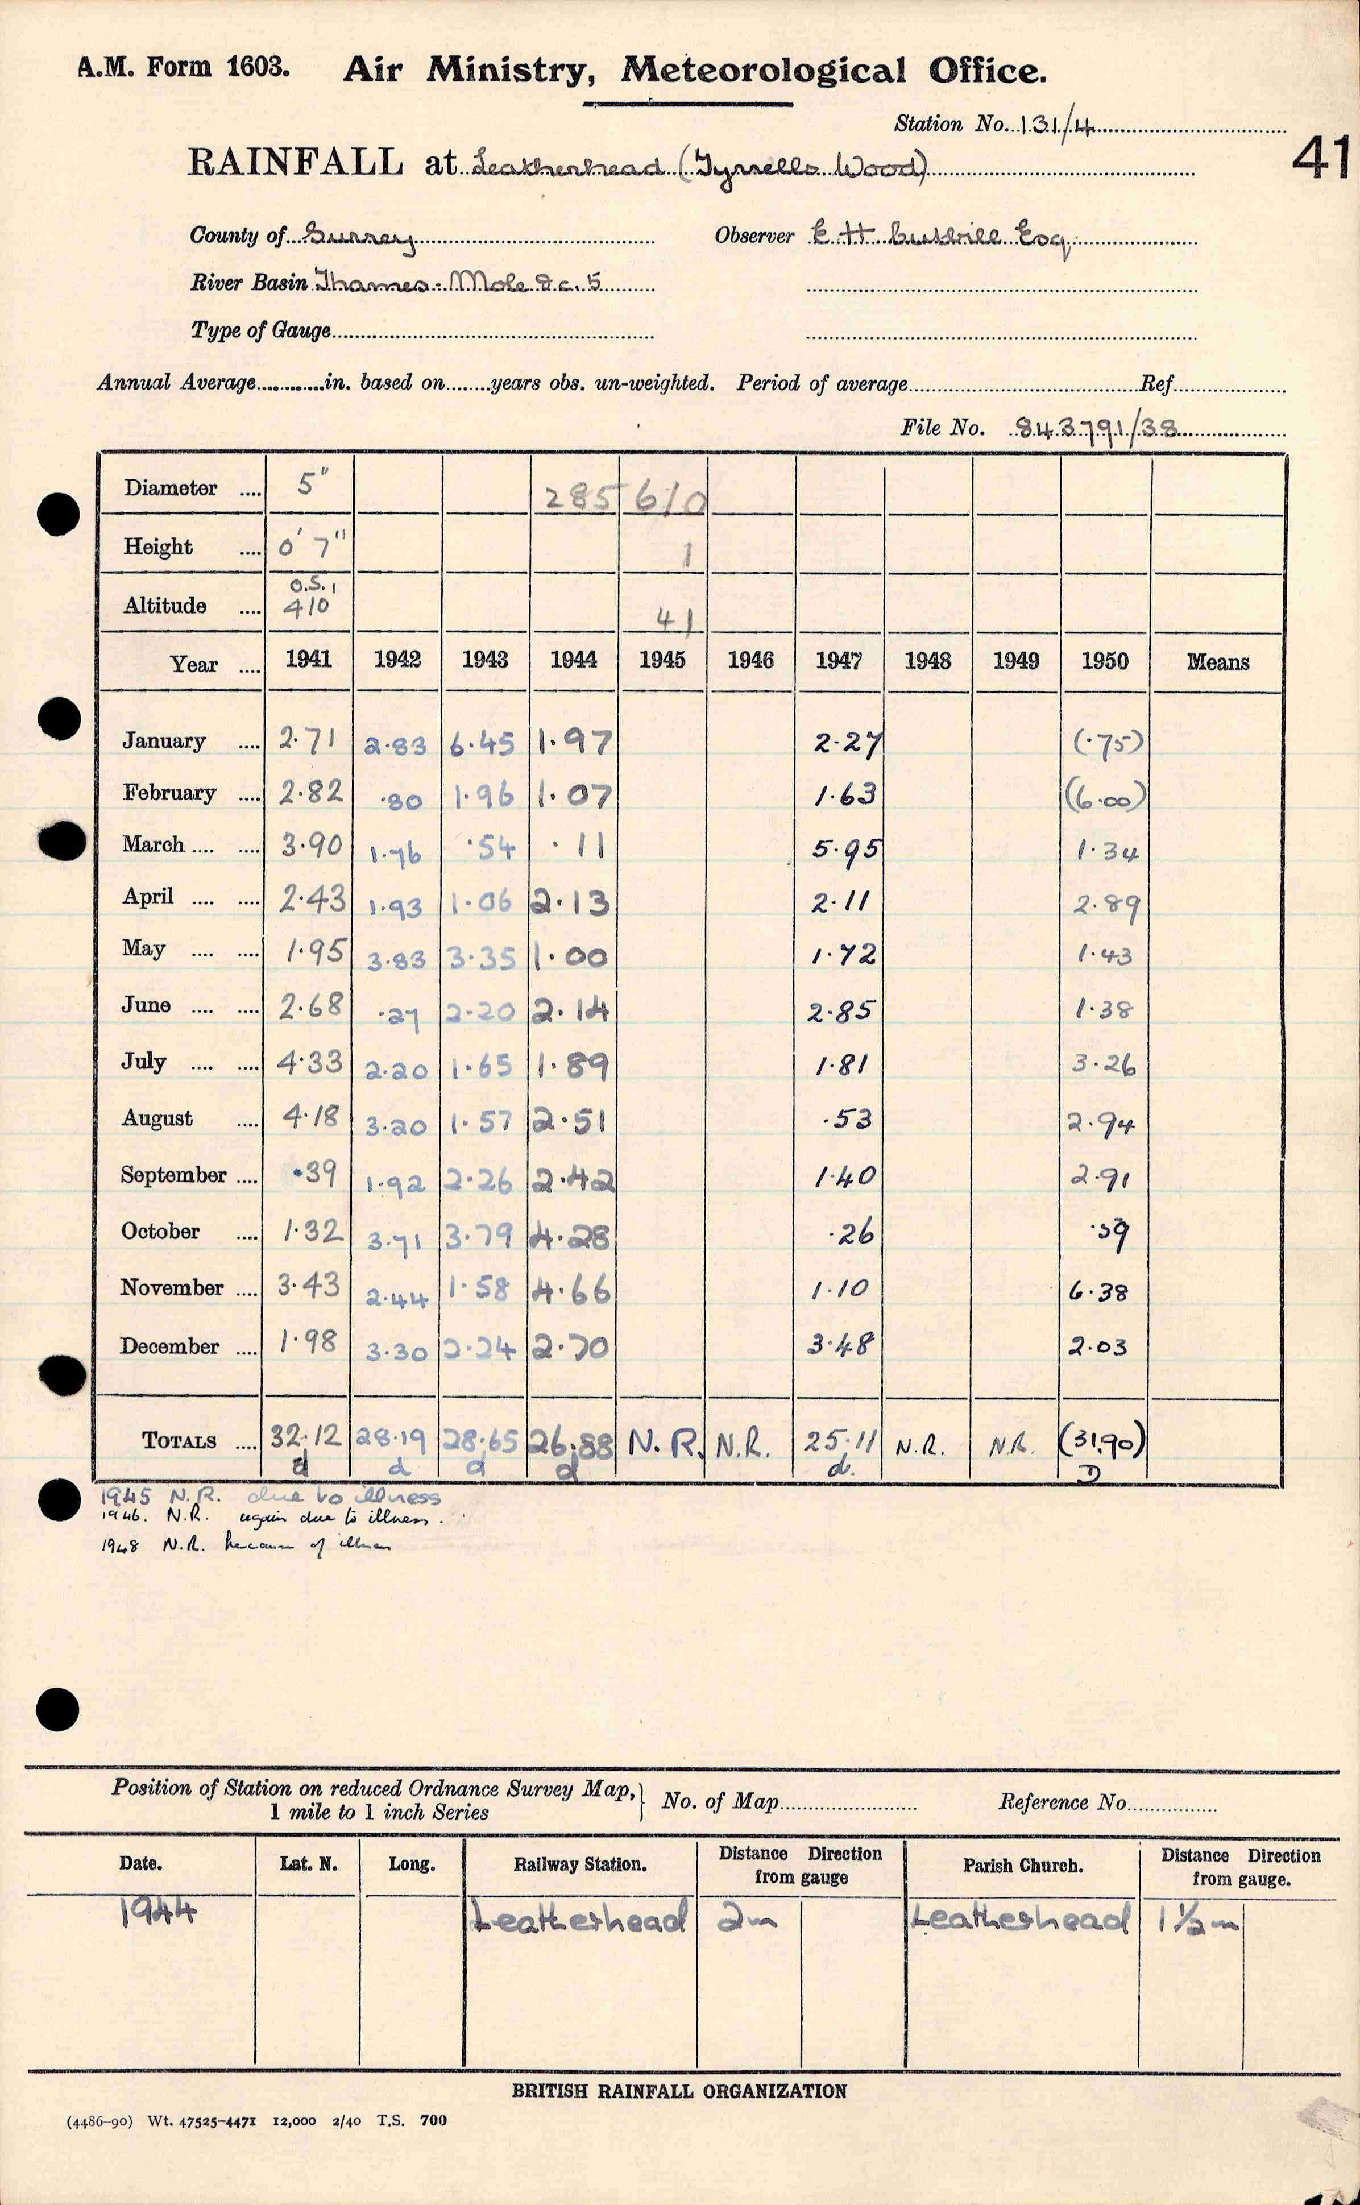 A.M. Form 1603. Air Ministry, Meteorological Office.
Station No. 131/4
41
RAINFALL at Leatherhead (Tyrrells Wood)
County of Surrey Observer E H Esq.
River Basin Thames - Mole &c. 5
Type of Gauge
Annual Average in. based on years obs. un-weighted. Period of average Ref
File No. 843791/38
Diameter 5" 285 610
Height 0' 7" 1
Altitude O.S. 410 41
Year 1941 1942 1943 1944 1945 1946 1947 1948 1949 1950 Means
January 2.71 2.83 6.45 1.97 2.27 (.75)
February 2.82 .80 1.96 1.07 1.63 (6.00)
March 3.90 1.76 .54 .11 5.95 1.34
April 2.43 1.93 1.06 2.13 2.11 2.89
May 1.95 3.83 3.35 1.00 1.72 1.43
June 2.68 .27 2.20 2.14 2.85 1.38
July 4.33 2.20 1.65 1.89 1.81 3.26
August 4.18 3.20 1.57 2.51 .53 2.94
September .39 1.92 2.26 2.42 1.40 2.91
October 1.32 3.71 3.79 4.28 .26 .59
November 3.43 2.44 1.58 4.66 1.10 6.38
December 1.98 3.30 2.24 2.70 3.48 2.03
TOTALS 32.12 28.19 28.65 26.88 N.R. N.R. 25.11 N.R. N.R. (31.90)
d d d d d. D
1945 N.R. due to illness
1946. N.R. again due to illness.
1948 N.R. because of illness
Position of Station on reduced Ordnance Survey Map, 1 mile to 1 inch Series } No. of Map Reference No.
Date. Lat. N. Long. Railway Station. Distance Direction from gauge Parish Church. Distance Direction from gauge.
1944 Leatherhead 2m Leatherhead 1½m
BRITISH RAINFALL ORGANIZATION
(4486-90) Wt. 47525-4471 12,000 2/40 T.S. 700